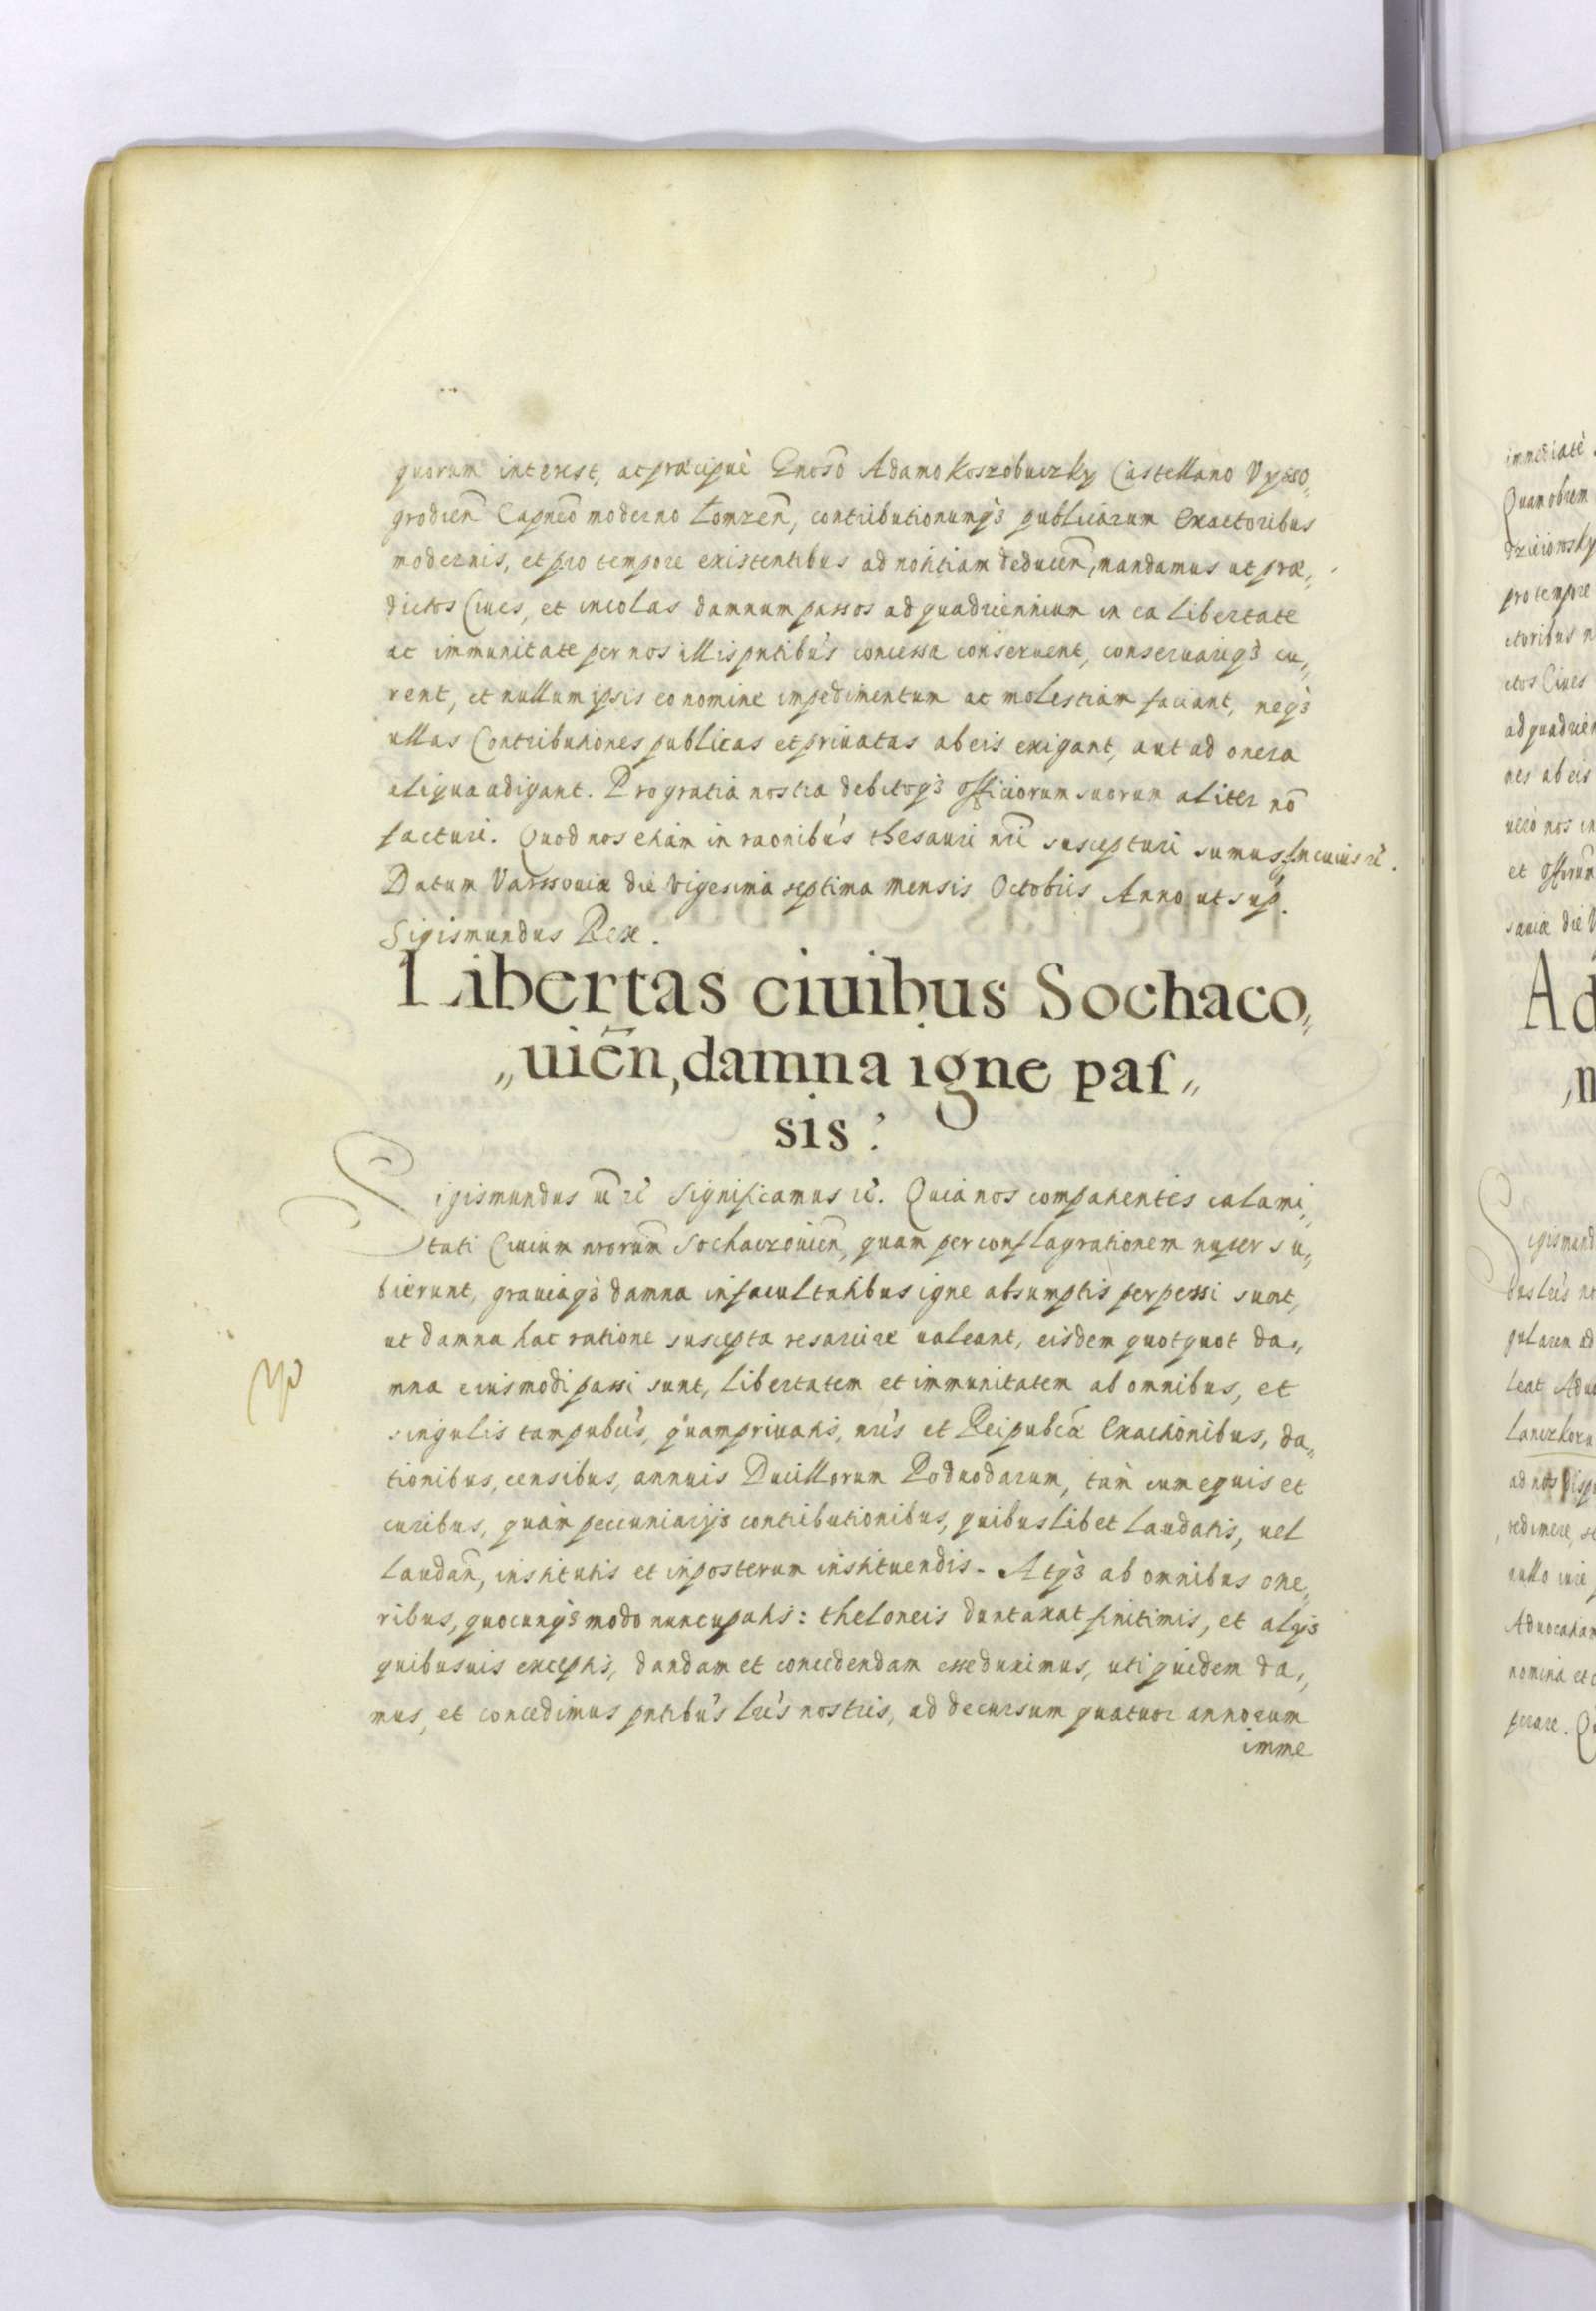 quorum interest, at præcipuè Gnoso Adamo Koszobuczky Castellano Vysso„
grodien̄ Capneo moderno Łomzen̄, contributionumq3 publicarum Exactoribus
modernis, et pro tempore existentibus ad notitiam deducen̄, mandamus ut præ„
dictos Ciues, et incolas damnum passos ad quadriennium in ea libertate
ac immunitate per nos illis pntibus concessa conseruent, conseruariq3 cu„
rent, et nullum ipsis eo nomine impedimentum ac molestiam faciant, neq3
ullas Contributiones publicas et priuatas ab eis exigant, aut ad onera
aliqua adigant. Pro gratia nostra debitoq3 officiorum suorum aliter nō
facturi. Quod nos etiam in raonibus thesauri nri suscepturi sumus. In cuius rei.
Datum Varssouiæ die vigesima septima mensis Octobris Anno ut sup.
Sigismundus Rex.
Libertas ciuibus Sochaco„
„uien̄, damna igne pas„
sis.
Sigismundus etc Significamus etc. Quia nos compatientes calami„
tati Ciuium nrorum Sochaczouien̄, quam per conflagrationem nuper su„
bierunt, grauiaq3 damna in facultatibus igne absumptis perpessi sunt,
ut damna hac ratione suscepta resarcire ualeant, eisdem quotquot da„
mna eiusmodi passi sunt, libertatem et immunitatem ab omnibus, et
singulis tam pubcis, quam priuatis, nris et Reipubcæ Exactionibus, da„
tionibus, censibus, annuis Ducillorum Poduodarum, tam cum equis et
curibus, quàm pecuniarijs contributionibus, quibuslibet laudatis, uel
laudan̄, institutis et inposterum instituendis. Atq3 ab omnibus one„
ribus, quocunq3 modo nuncupatis: theloneis duntaxat finitimis, et alijs
quibusuis exceptis, dandam et concedendam esse duximus, uti quidem da„
mus, et concedimus pntibus lris nostris, ad decursum quatuor annorum
imme
immediatè
Quamobrem
pro tempore
ctoribus
ctos Ciues
ad quadrien
nes ab eis
uerò nos in
et
sauiæ die
Ad
Sigismund
gularem ad
leat Aduo
Lanczkoru
redimere,
nullo iure
Aduocatiam
nomina et
perare.